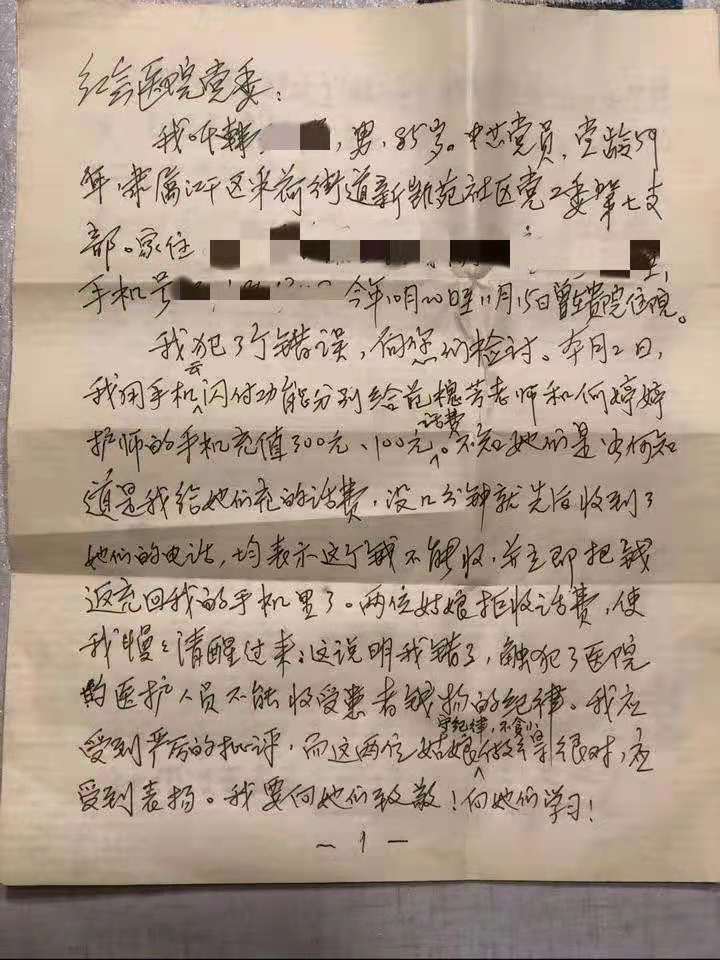 红会医院党委：
我叫韩，男，85岁。中共党员，党龄59
年，隶属江干区采荷街道新凯苑社区党工委第七支
部。家住
手机号 今年10月20日至11月15日曾在贵院住院。
我犯了个错误，向你们检讨。本月2日，
我用手机云闪付功能分别给范槐芳老师和何婷婷
护师的手机充值300元、100元话费。不知她们是如何知
道是我给她们充的话费，没几分钟就先后收到了
她们的电话，均表示这个钱不能收，并立即把钱
返充回我的手机里了。两位姑娘拒收话费，使
我慢慢清醒过来：这说明我错了，触犯了医院
的医护人员不能收受患者钱物的纪律。我应
受到严厉的批评，而这两位姑娘守纪律，不贪小，做得很对，应
受到表扬。我要向她们致敬！向她们学习！
～1－